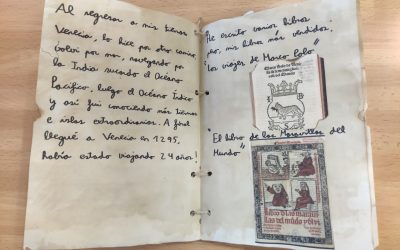 Al regresar a mis tierras
Venecia, lo hice por otro camino
Volví por mar, navegando por
la India surcando el Océano
Pacífico, luego el Océano Índico
y así fui conociendo más tierras
e islas extraordinarias. A final
llegué a Venecia en 1295,
Había estado viajando 24 años!
He escrito varios libros
pero, mis libros más vendidos.
"Los viajes de Marco Polo"
"El libro de las Maravillas del
Mundo"